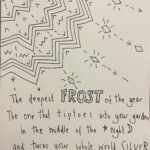 The deepest FROST of the year
The one that tiptoes into your garden
in the middle of the night
and turns your whole world SILVER